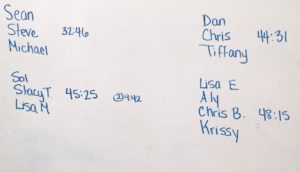 Sean
Steve 32:46
Michael
Dan
Chris 44:31
Tiffany
Sol
Stacy T. 45:25 ② 9:42
Lisa M
Lisa E
Aly
Chris B. 48:15
Krissy